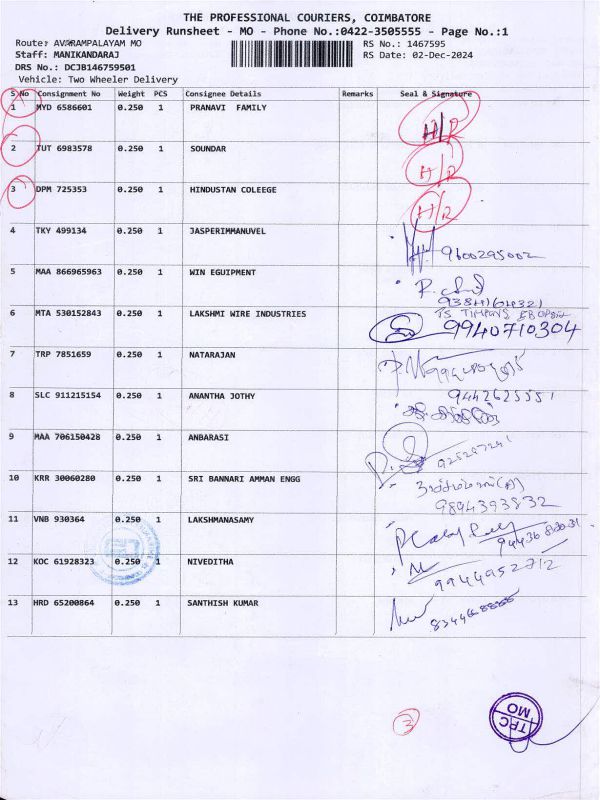 THE PROFESSIONAL COURIERS, COIMBATORE
Delivery Runsheet - MO - Phone No.:0422-3505555 - Page No.:1
Route: AVARAMPALAYAM MO RS No.: 1467595
Staff: MANIKANDARAJ RS Date: 02-Dec-2024
DRS No.: DCJB146759501
Vehicle: Two Wheeler Delivery
S No Consignment No Weight PCS Consignee Details Remarks Seal & Signature
1 MYD 6586601 0.250 1 PRANAVI FAMILY H/R
2 TUT 6983578 0.250 1 SOUNDAR H/R
3 DPM 725353 0.250 1 HINDUSTAN COLEEGE H/R
4 TKY 499134 0.250 1 JASPERIMMANUVEL 9600295002
5 MAA 866965963 0.250 1 WIN EGUIPMENT
6 MTA 530152843 0.250 1 LAKSHMI WIRE INDUSTRIES 9940710304
7 TRP 7851659 0.250 1 NATARAJAN
8 SLC 911215154 0.250 1 ANANTHA JOTHY 9442625551
9 MAA 706150428 0.250 1 ANBARASI
10 KRR 30060280 0.250 1 SRI BANNARI AMMAN ENGG 9894393832
11 VNB 930364 0.250 1 LAKSHMANASAMY
12 KOC 61928323 0.250 1 NIVEDITHA 9944952712
13 HRD 65200864 0.250 1 SANTHISH KUMAR
3
TPC
MO